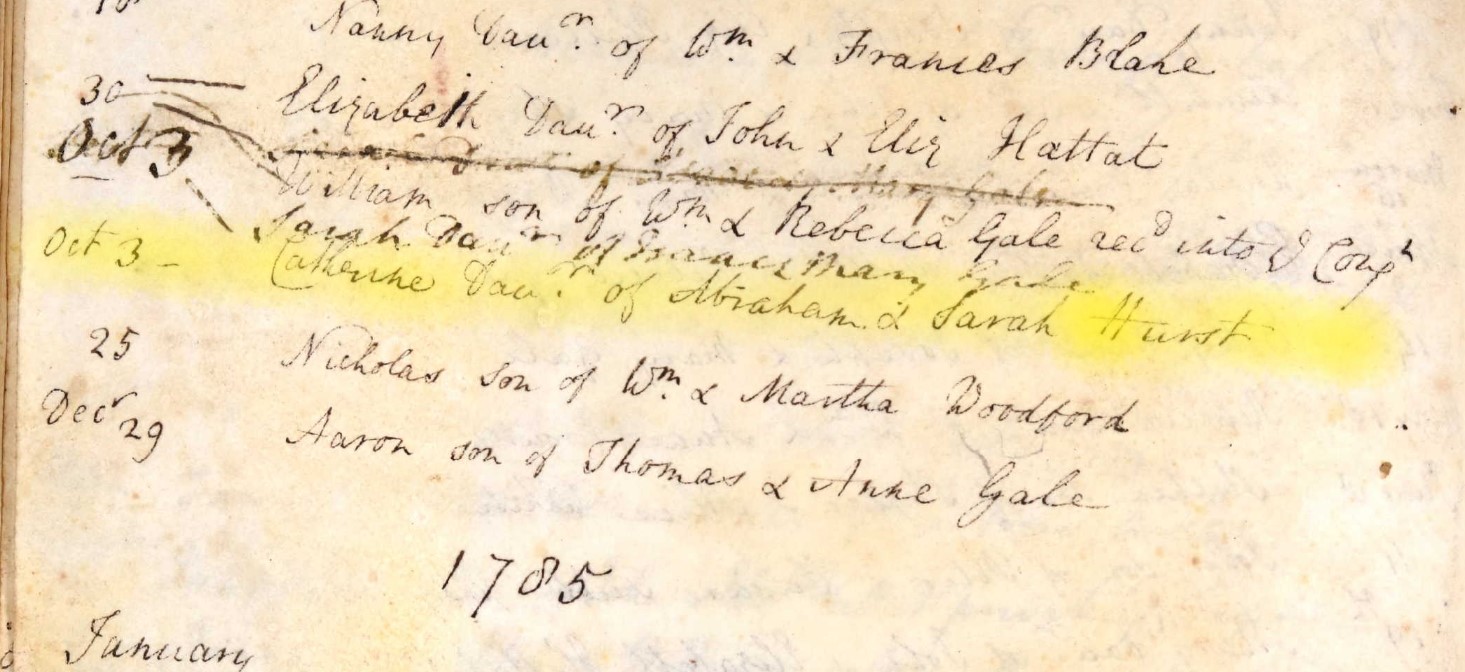 Nanny Daur. of Wm. & Frances Blake
30 Elizabeth Daur. of John & Eliz Hattat
Oct 3
William son of Wm & Rebecca Gale recd into ye Congh
Sarah Daur of Francis Mary Gale
Oct 3 - Catherine Daur. of Abraham & Sarah Hurst
25 Nicholas son of Wm. & Martha Woodford
Decr 29 Aaron son of Thomas & Anne Gale
1785
January